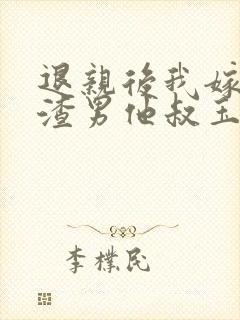 退親後我嫁
渣男他叔王
李樸民